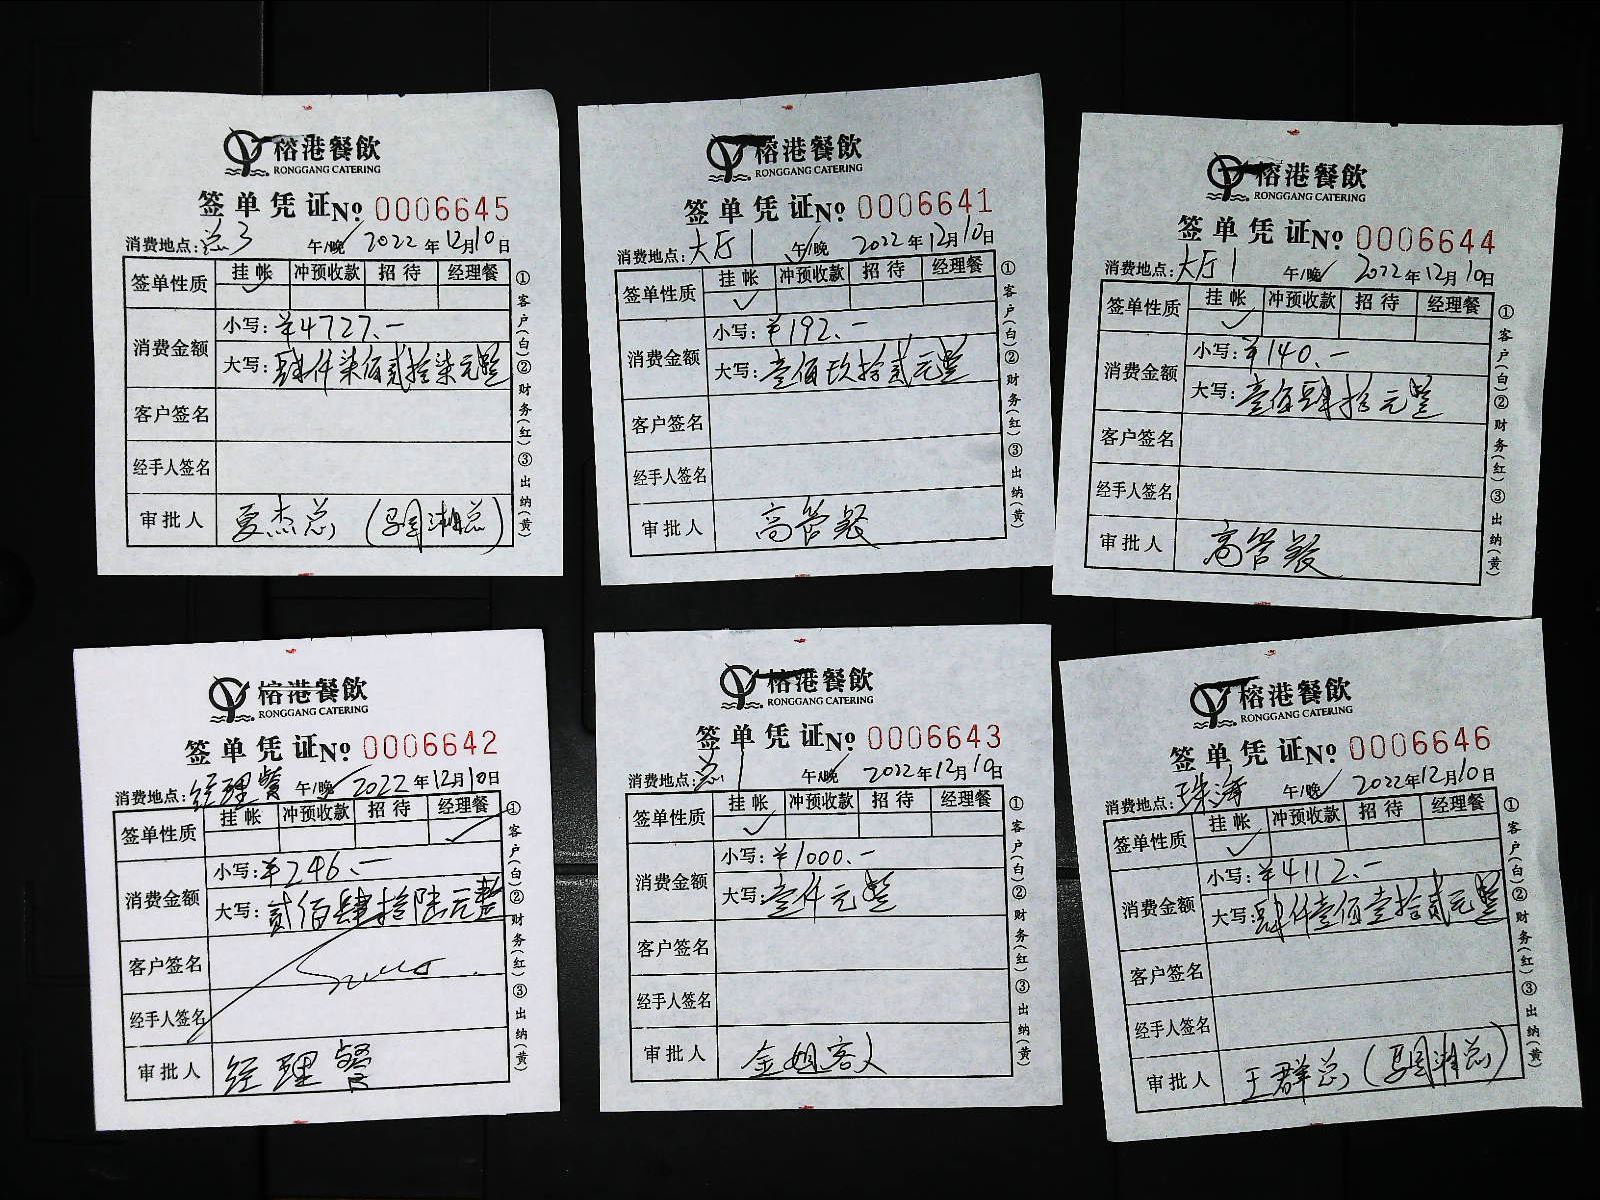 榕港餐飲
RONGGANG CATERING
签单凭证№ 0006645
消费地点:总3 午/晚 2022年12月10日
签单性质 挂帐 冲预收款 招待 经理餐
消费金额 小写:¥4727.-
大写:肆仟柒佰贰拾柒元整
客户签名
经手人签名
审批人 夏杰总
①客户(白)②财务(红)③出纳(黄)
榕港餐飲
RONGGANG CATERING
签单凭证№ 0006641
消费地点:大厅1 午/晚 2022年12月10日
签单性质 挂帐 冲预收款 招待 经理餐
消费金额 小写:¥192.-
大写:壹佰玖拾贰元整
客户签名
经手人签名
审批人 高管餐
①客户(白)②财务(红)③出纳(黄)
榕港餐飲
RONGGANG CATERING
签单凭证№ 0006644
消费地点:大厅1 午/晚 2022年12月10日
签单性质 挂帐 冲预收款 招待 经理餐
消费金额 小写:¥140.-
大写:壹佰肆拾元整
客户签名
经手人签名
审批人 高管餐
①客户(白)②财务(红)③出纳(黄)
榕港餐飲
RONGGANG CATERING
签单凭证№ 0006642
消费地点:经理餐 午/晚 2022年12月10日
签单性质 挂帐 冲预收款 招待 经理餐
消费金额 小写:¥246.-
大写:贰佰肆拾陆元整
客户签名
经手人签名
审批人 经理餐
①客户(白)②财务(红)③出纳(黄)
榕港餐飲
RONGGANG CATERING
签单凭证№ 0006643
消费地点:总1 午/晚 2022年12月10日
签单性质 挂帐 冲预收款 招待 经理餐
消费金额 小写:¥1000.-
大写:壹仟元整
客户签名
经手人签名
审批人 金姐客人
①客户(白)②财务(红)③出纳(黄)
榕港餐飲
RONGGANG CATERING
签单凭证№ 0006646
消费地点:珠海 午/晚 2022年12月10日
签单性质 挂帐 冲预收款 招待 经理餐
消费金额 小写:¥4112.-
大写:肆仟壹佰壹拾贰元整
客户签名
经手人签名
审批人 王群总
①客户(白)②财务(红)③出纳(黄)